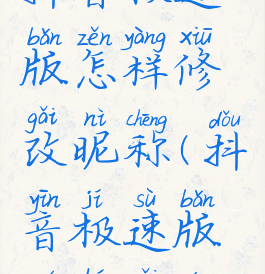 bǎn zěn yàng xiū
版怎样修
gǎi nì chēng dǒu
改昵称(抖
yīn jí sù bǎn
音极速版